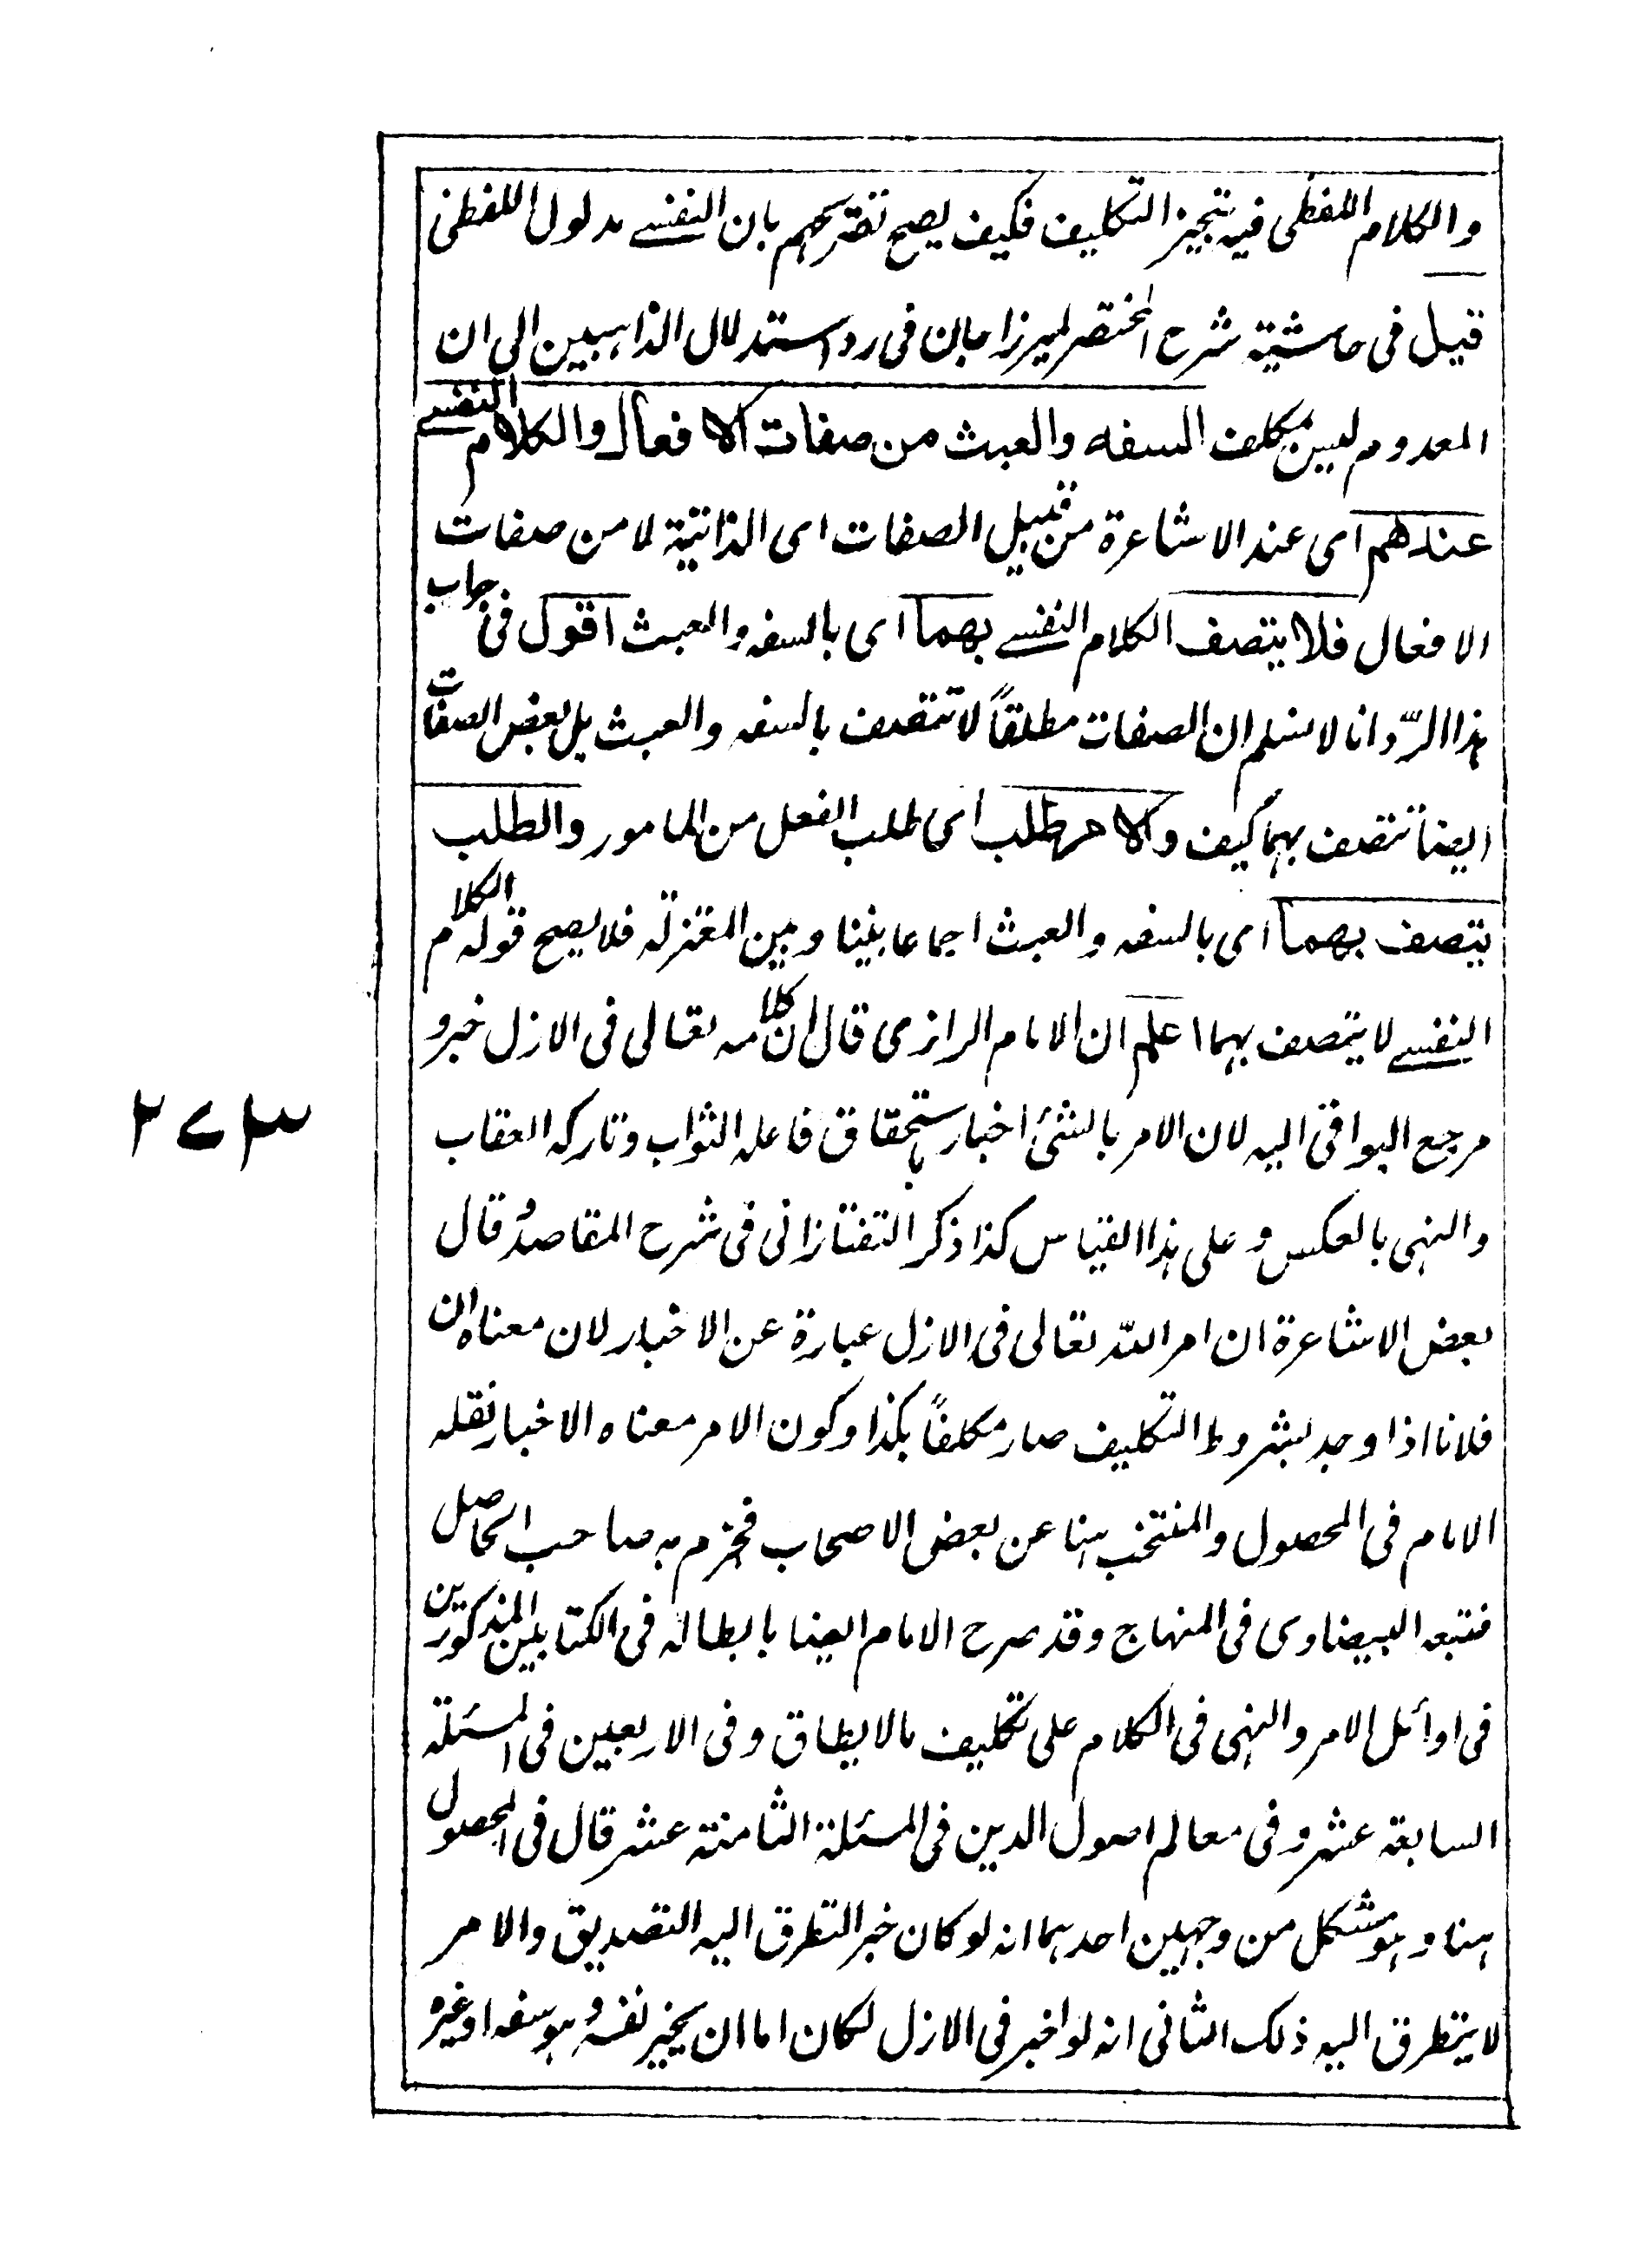 والكلام اللفظى فيه تنجيز التكليف فكيف يصح تصريحهم بان النفسى مدلول اللفظى
قيل فى حاشية شرح المختصر لميرزا جان فى رد استدلال الذاهبين الى ان
المعدوم ليس مكلف السفه والعبث من صفات الافعال والكلام النفسى
عندهم اى عند الاشاعرة من قبيل الصفات اى الذاتية لا من صفات
الافعال فلا يتصف الكلام النفسى بهما اى بالسفه والعبث اقول فى جواب
هذا الردّ انا لا نسلم ان الصفات مطلقاً لا تتصف بالسفه والعبث بل بعض الصفات
ايضا تتصف بهما كيف والامر طلب اى طلب الفعل من المامور والطلب
يتصف بهما اى بالسفه والعبث اجماعا بيننا وبين المعتزلة فلا يصح قوله الكلام
النفسى لا يتصف بهما اعلم ان الامام الرازى قال ان كلامه تعالى فى الازل خبر و
مرجع البواقى اليه لان الامر بالشئ اخبار باستحقاق فاعله الثواب وتاركه العقاب
والنهى بالعكس وعلى هذا القياس كذا ذكر التفتازانى فى شرح المقاصد وقال
بعض الاشاعرة ان امر الله تعالى فى الازل عبارة عن الاخبار لان معناه ان
فلانا اذا وجد بشروط التكليف صار مكلفاً بكذا وكون الامر معناه الاخبار نقله
الامام فى المحصول والمنتخب هنا عن بعض الاصحاب فجزم به صاحب الحاصل
فتبعه البيضاوى فى المنهاج وقد صرح الامام ايضا بابطاله فى الكتابين المذكورين
فى اوائل الامر والنهى فى الكلام على تكليف مالايطاق وفى الاربعين فى المسئلة
السابعة عشر وفى معالم اصول الدين فى المسئلة الثامنة عشر قال فى المحصول
هنا وهو مشكل من وجهين احدهما انه لو كان خبرا لتطرق اليه التصديق والامر
لا يتطرق اليه ذلك الثانى انه لو اخبر فى الازل لكان اما ان يخبر نفسه وهو سفه او غيره
٢٧٣